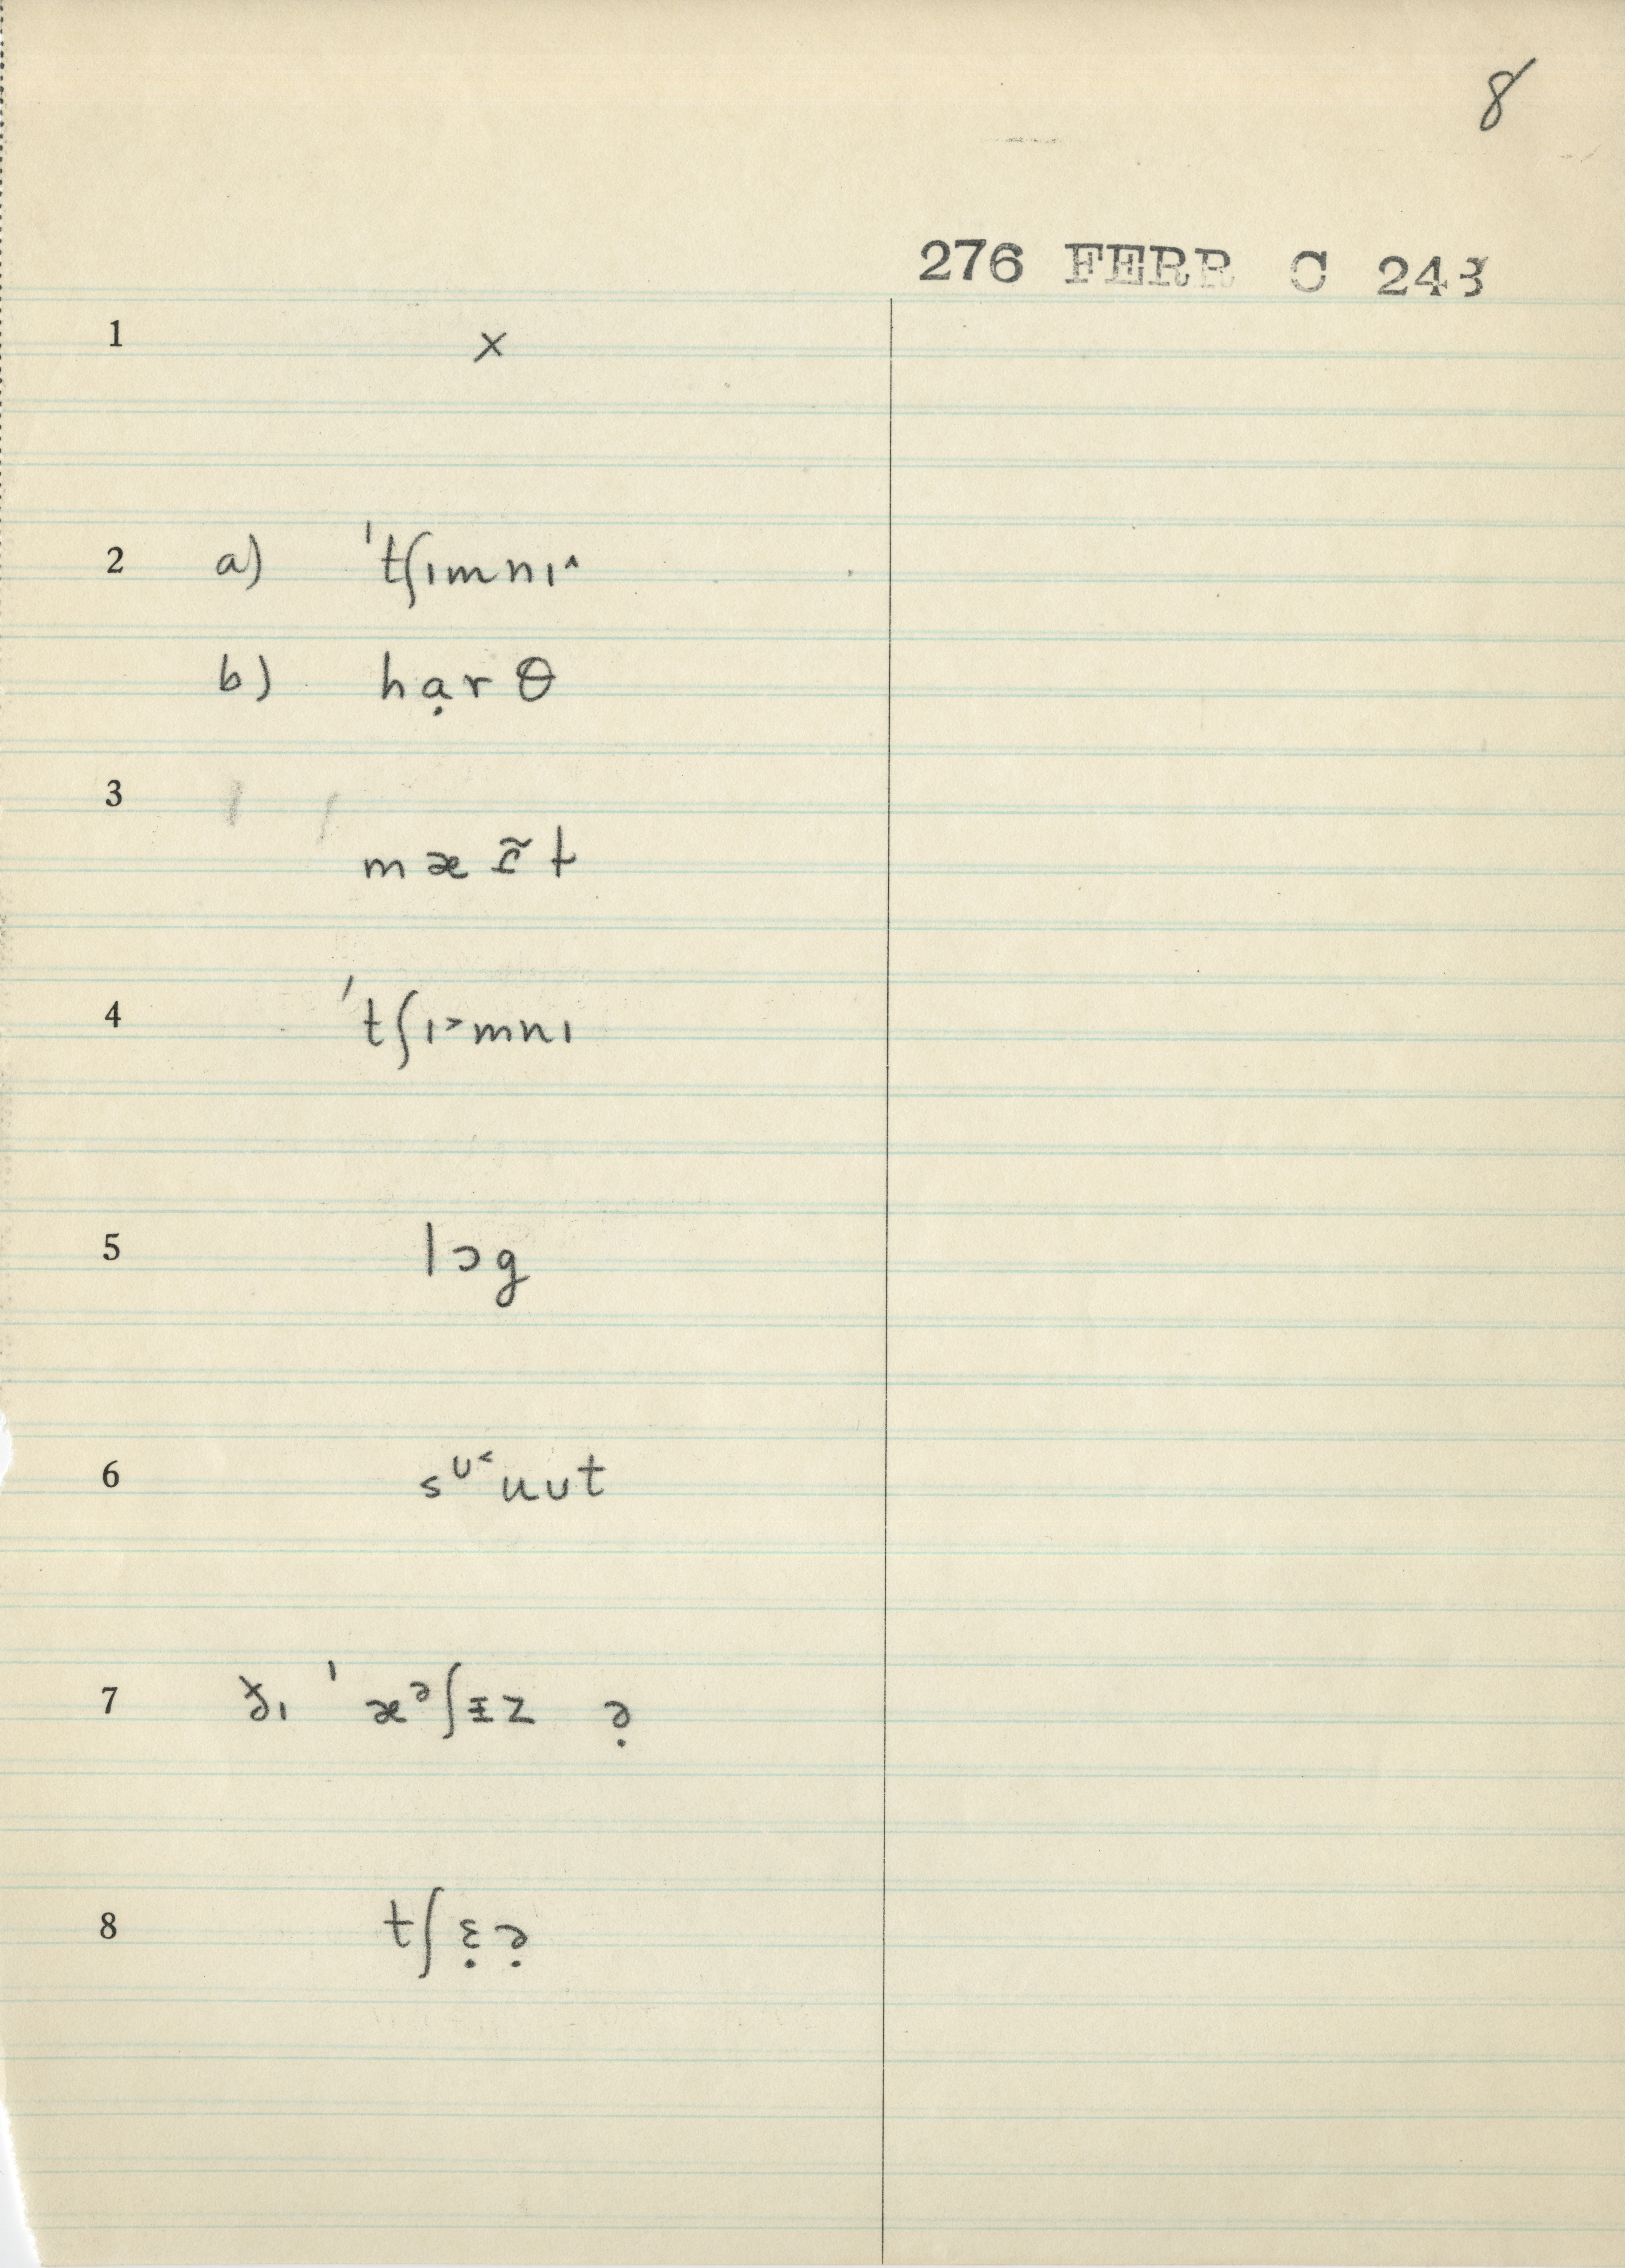 8
276 FERR C 243
1 x
2 a) ˈtʃɪmnɪ˄
b) hạrθ
3 mæɪ̵̃t
4 ˈtʃɪ˃mnɪ
5 lɔg
6 sᶷ˂ʉʊt
7 ðɪ ˈæᵊʃɪ̵z ə̣
8 tʃɛ̣ə̣